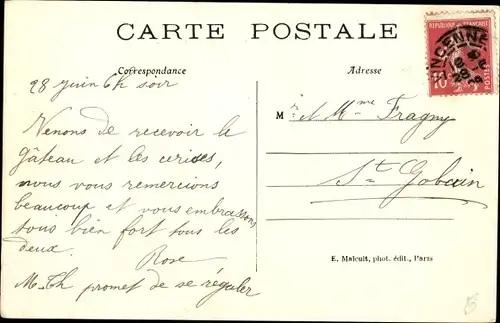 CARTE POSTALE
RÉPUBLIQUE FRANÇAISE
VINCENNES
10
POSTES
Correspondance
Adresse
28 juin 6h soir
Mr et Mme Fragny
St Gobain
Venons de recevoir le
gâteau et les cerises,
nous vous remercions
beaucoup et vous embrassons
tous bien fort tous les
deux.
Rose
M. Th promet de se régaler
E. Malcuit, phot. édit., Paris